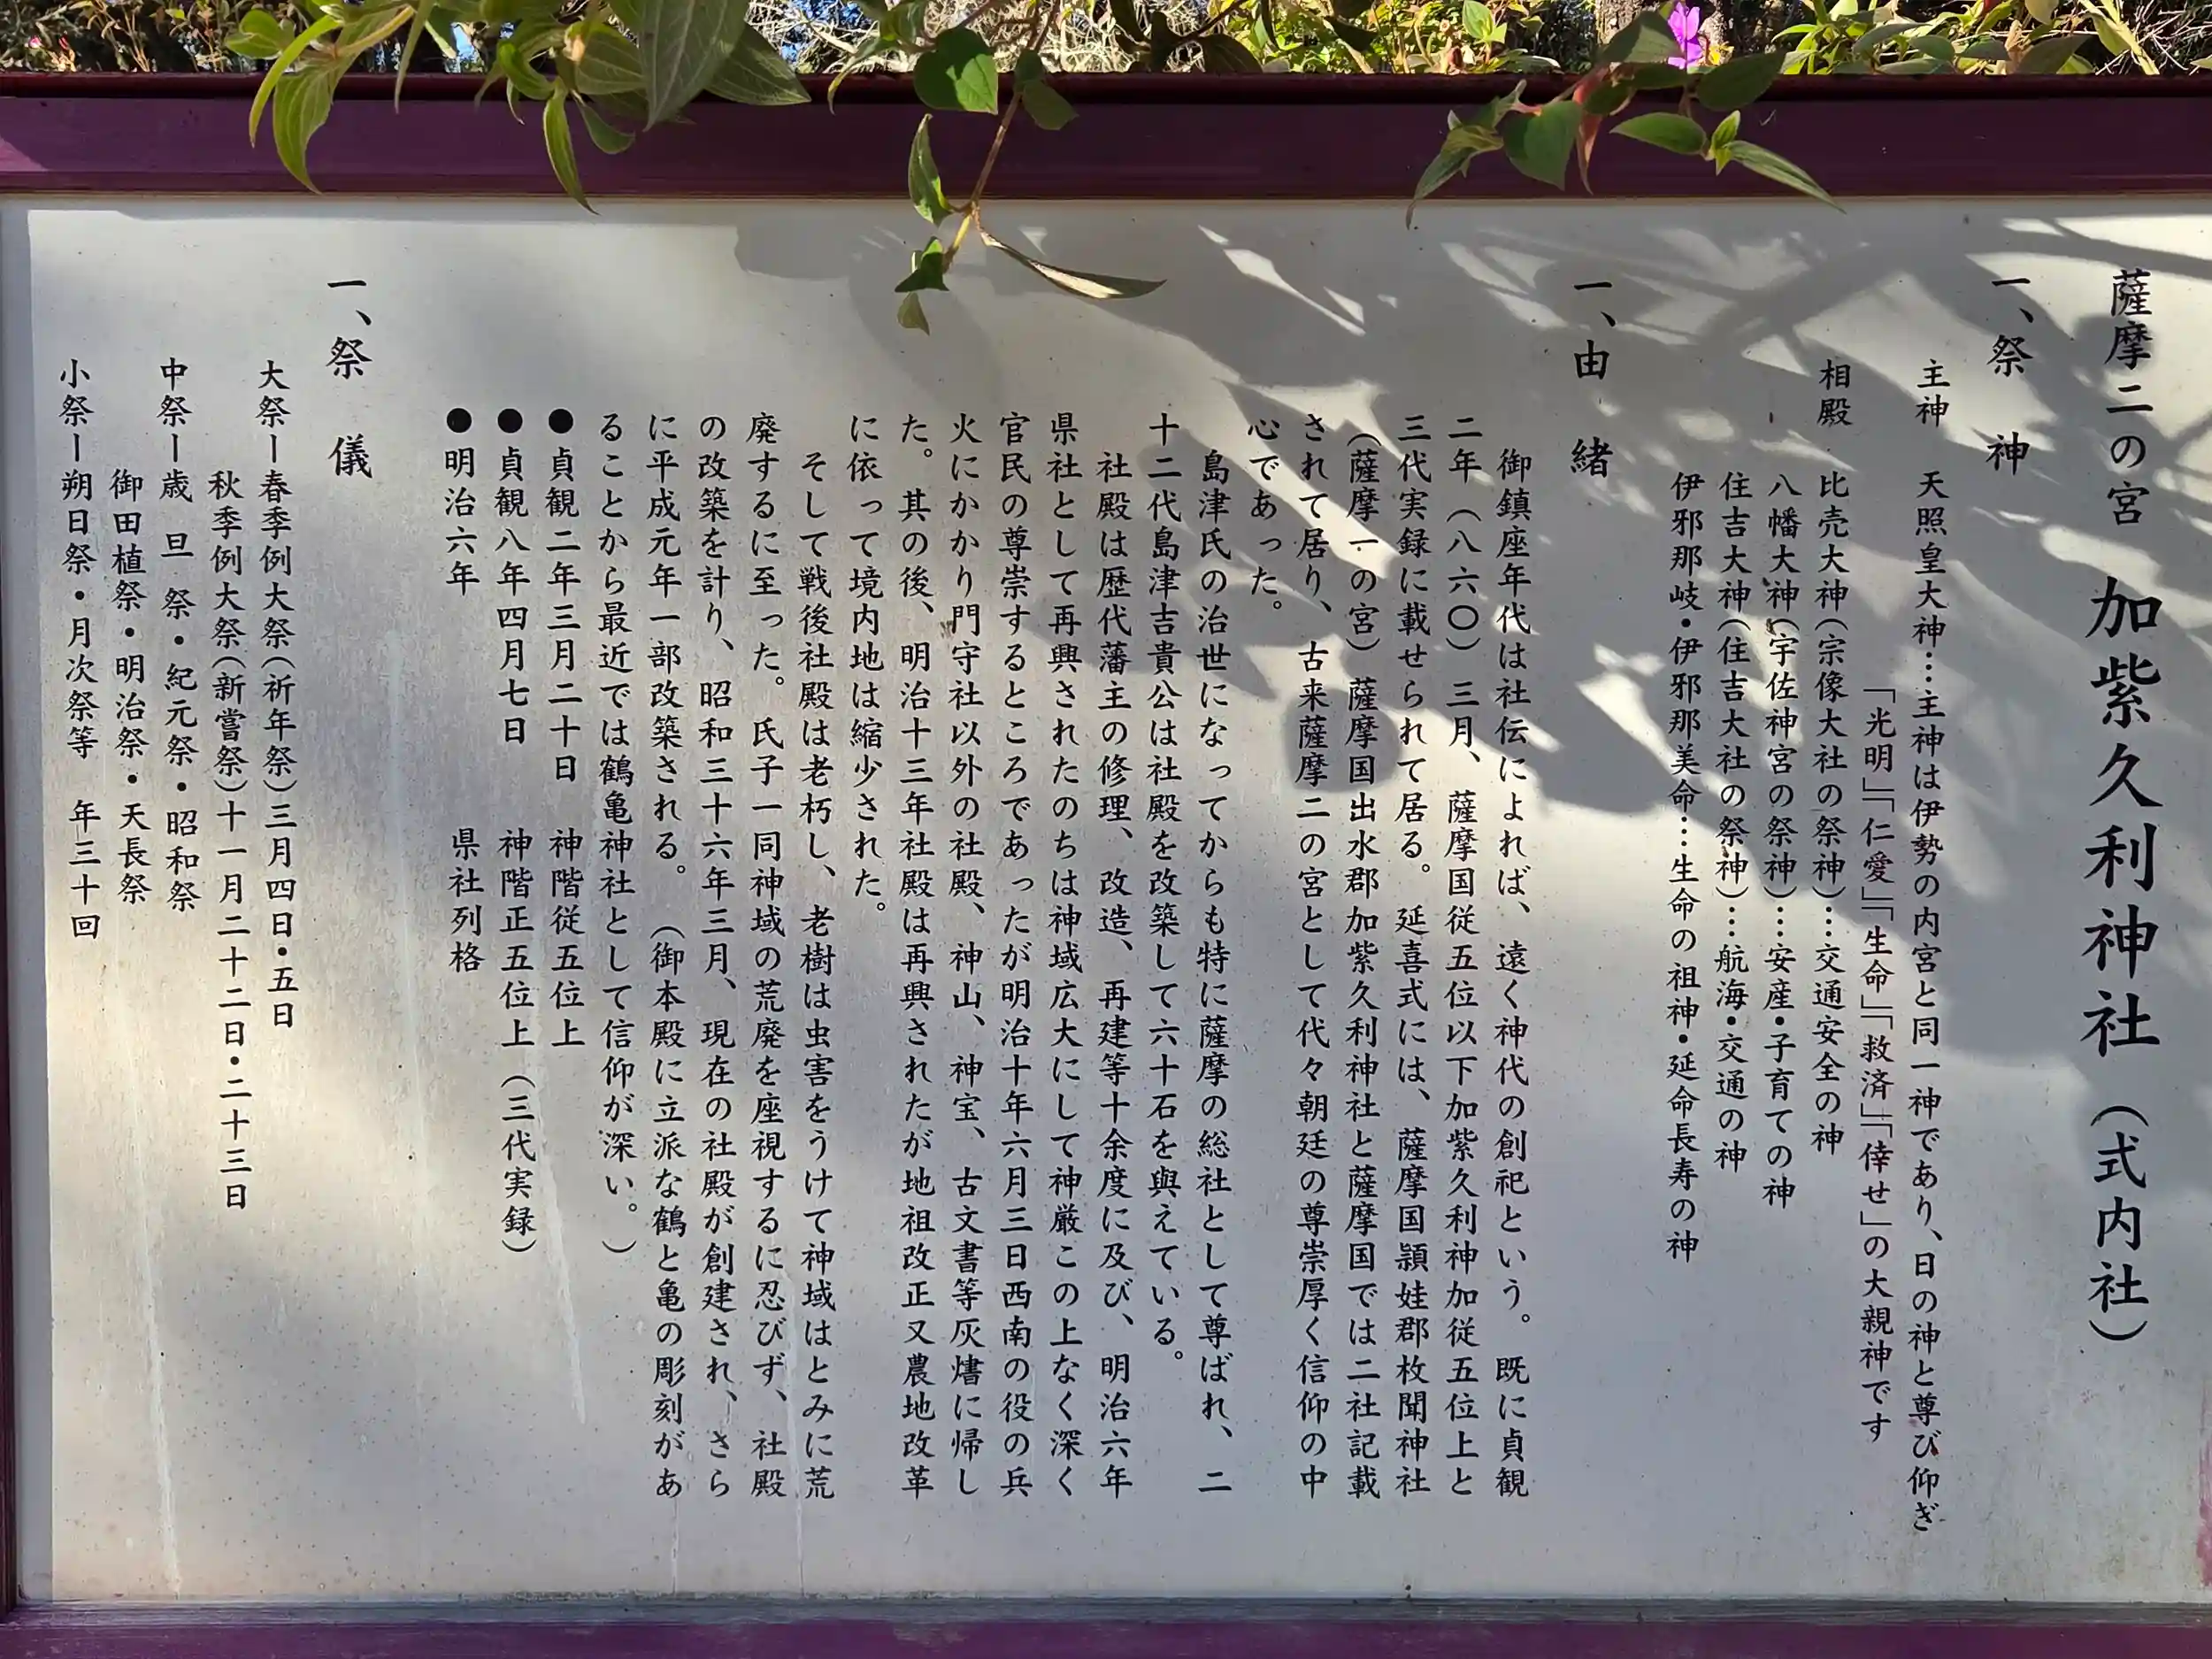 薩摩二の宮　加紫久利神社（式内社）
一、祭　神
主神　天照皇大神…主神は伊勢の内宮と同一神であり、日の神と尊び仰ぎ
「光明」「仁愛」「生命」「救済」「倖せ」の大親神です
相殿　比売大神（宗像大社の祭神）…交通安全の神
八幡大神（宇佐神宮の祭神）…安産・子育ての神
住吉大神（住吉大社の祭神）…航海・交通の神
伊邪那岐・伊邪那美命…生命の祖神・延命長寿の神
一、由　緒
御鎮座年代は社伝によれば、遠く神代の創祀という。既に貞観
二年（八六〇）三月、薩摩国従五位以下加紫久利神加従五位上と
三代実録に載せられて居る。延喜式には、薩摩国頴娃郡枚聞神社
（薩摩一の宮）薩摩国出水郡加紫久利神社と薩摩国では二社記載
されて居り、古来薩摩二の宮として代々朝廷の尊崇厚く信仰の中
心であった。
島津氏の治世になってからも特に薩摩の総社として尊ばれ、二
十二代島津吉貴公は社殿を改築して六十石を與えている。
社殿は歴代藩主の修理、改造、再建等十余度に及び、明治六年
県社として再興されたのちは神域広大にして神厳この上なく深く
官民の尊崇するところであったが明治十年六月三日西南の役の兵
火にかかり門守社以外の社殿、神山、神宝、古文書等灰燼に帰し
た。其の後、明治十三年社殿は再興されたが地祖改正又農地改革
に依って境内地は縮少された。
そして戦後社殿は老朽し、老樹は虫害をうけて神域はとみに荒
廃するに至った。氏子一同神域の荒廃を座視するに忍びず、社殿
の改築を計り、昭和三十六年三月、現在の社殿が創建され、さら
に平成元年一部改築される。（御本殿に立派な鶴と亀の彫刻があ
ることから最近では鶴亀神社として信仰が深い。）
●貞観二年三月二十日　神階従五位上
●貞観八年四月七日　神階正五位上（三代実録）
●明治六年　県社列格
一、祭　儀
大祭ー春季例大祭（祈年祭）三月四日・五日
秋季例大祭（新嘗祭）十一月二十二日・二十三日
中祭ー歳　旦　祭・紀元祭・昭和祭
御田植祭・明治祭・天長祭
小祭ー朔日祭・月次祭等　年三十回